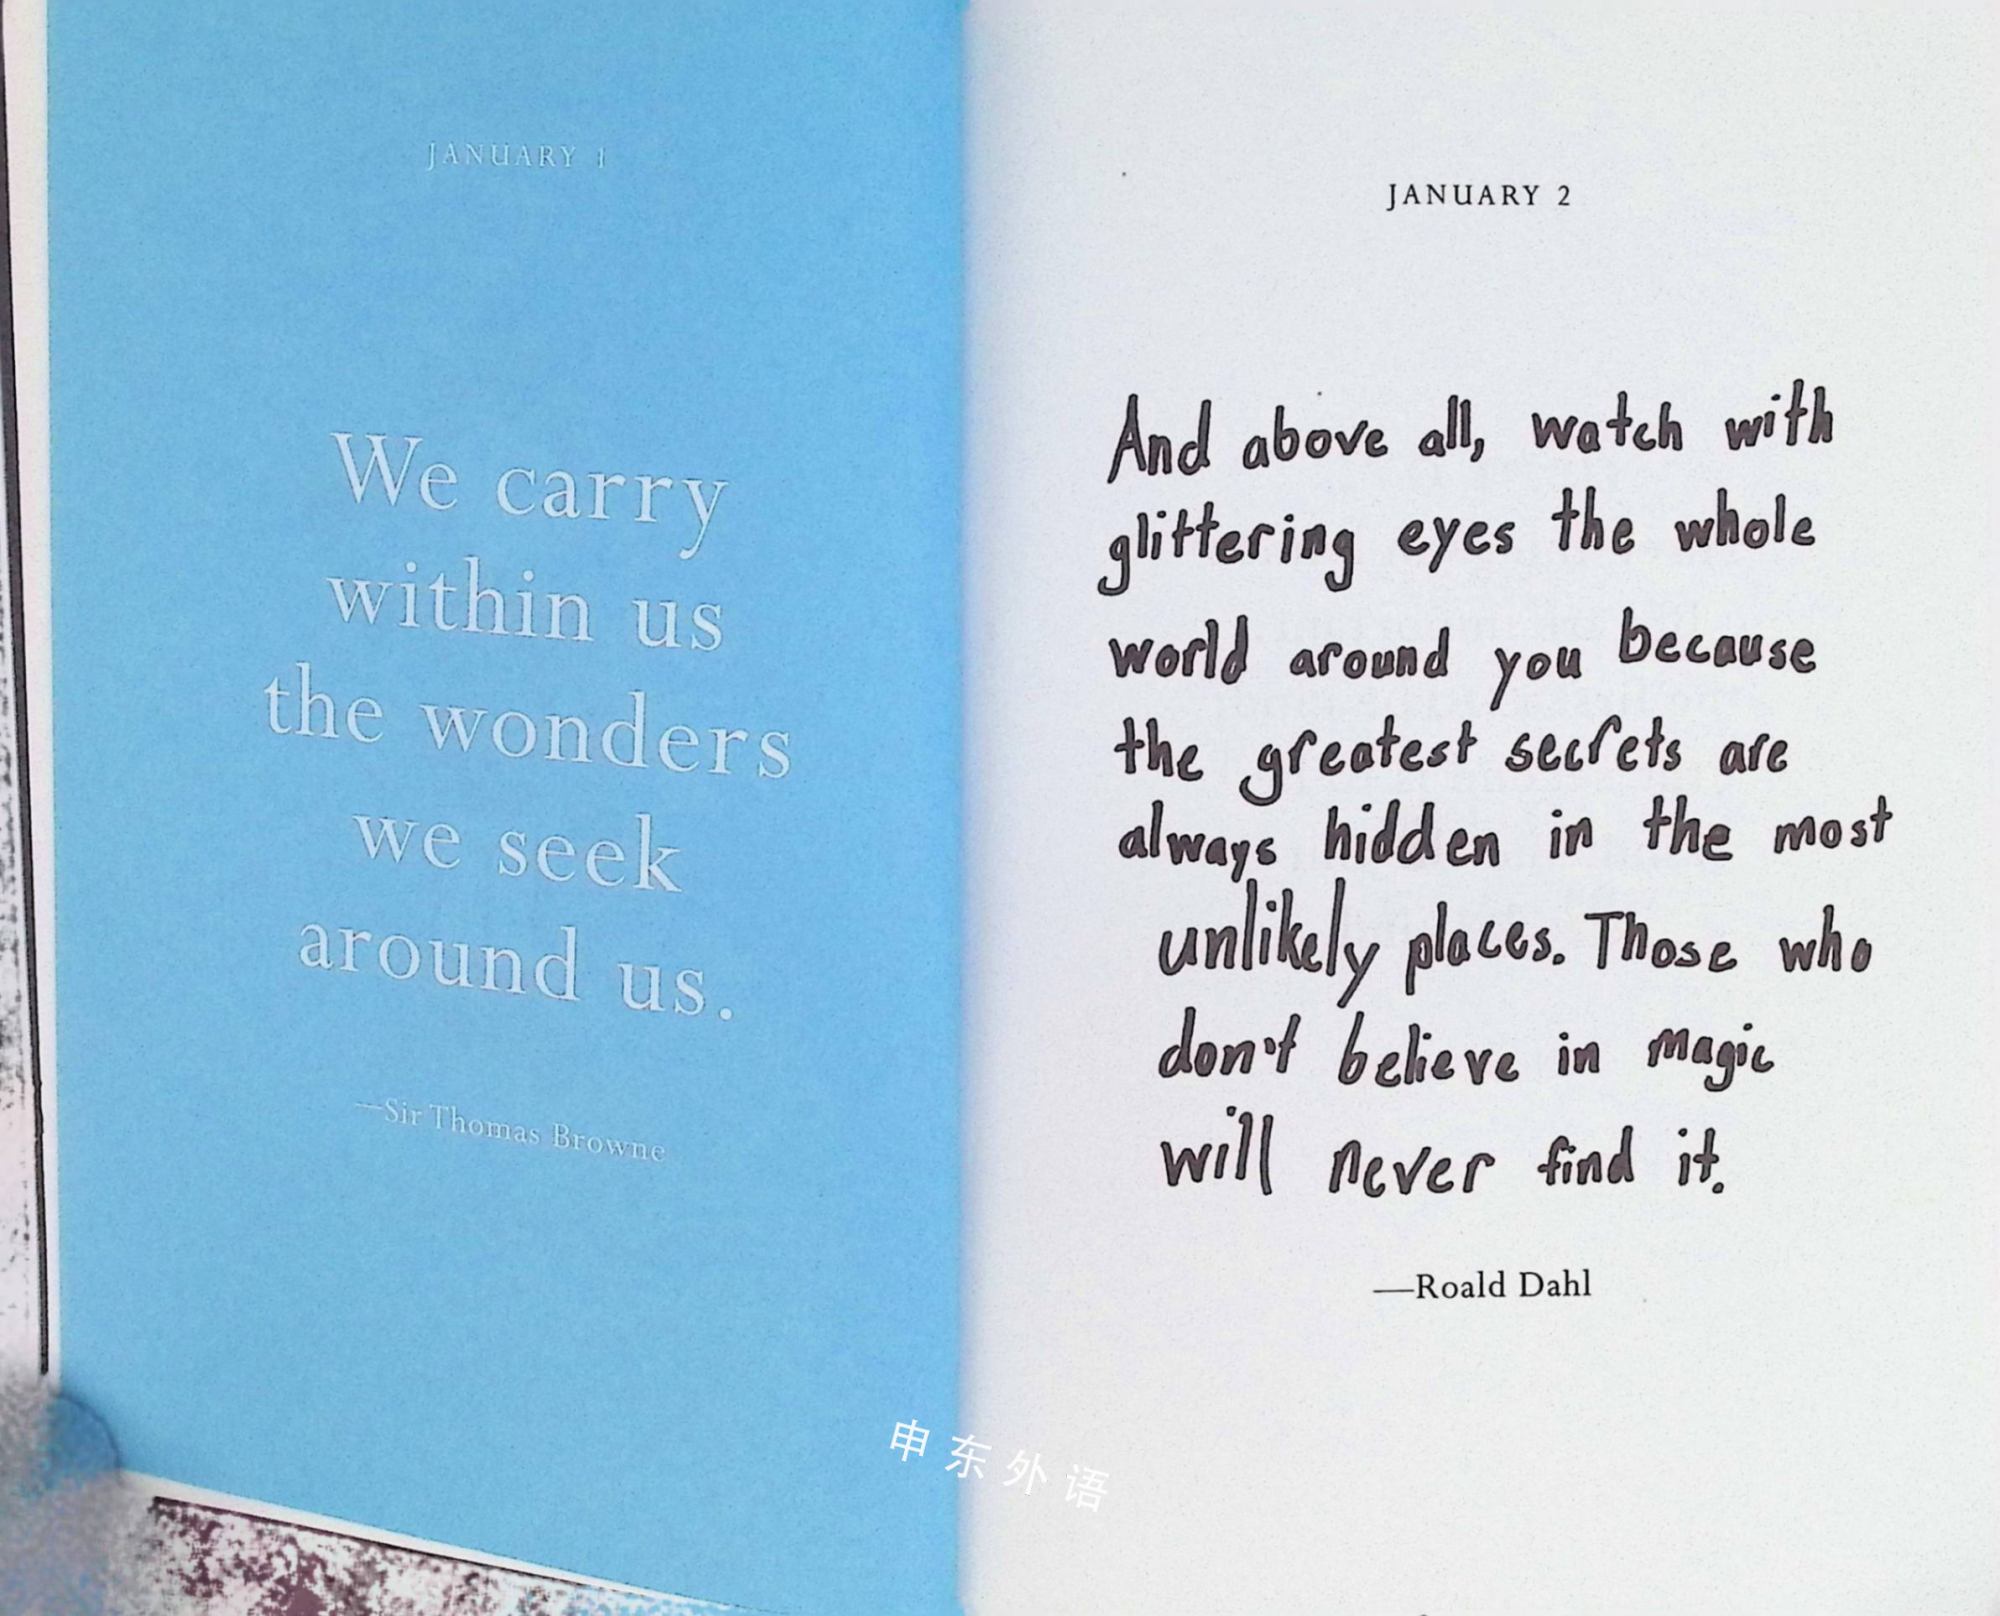 JANUARY 1
We carry
within us
the wonders
we seek
around us.
—Sir Thomas Browne
JANUARY 2
And above all, watch with
glittering eyes the whole
world around you because
the greatest secrets are
always hidden in the most
unlikely places. Those who
don't believe in magic
will never find it.
—Roald Dahl
申东外语